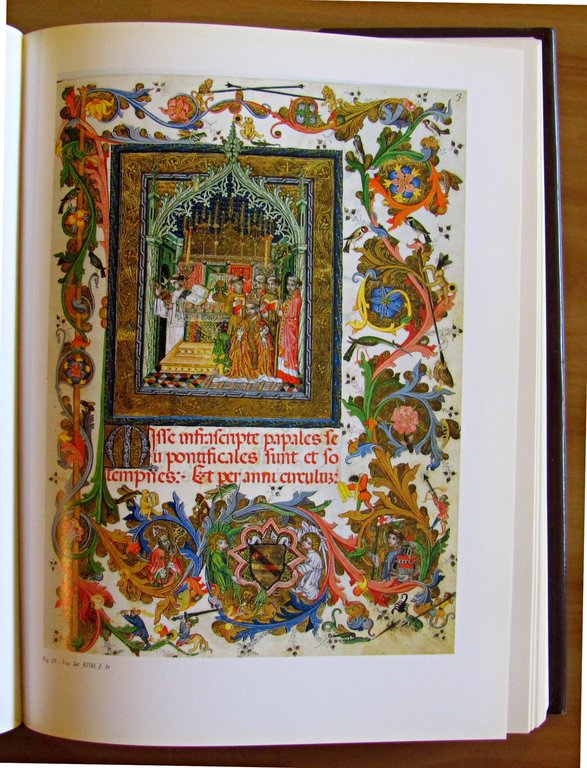 3
Misse infrascripte papales se
u pontificales sunt et so
lempnes: Et per anni circuluz:
Fig. 29 - Vat. lat. 8700, f. 3r